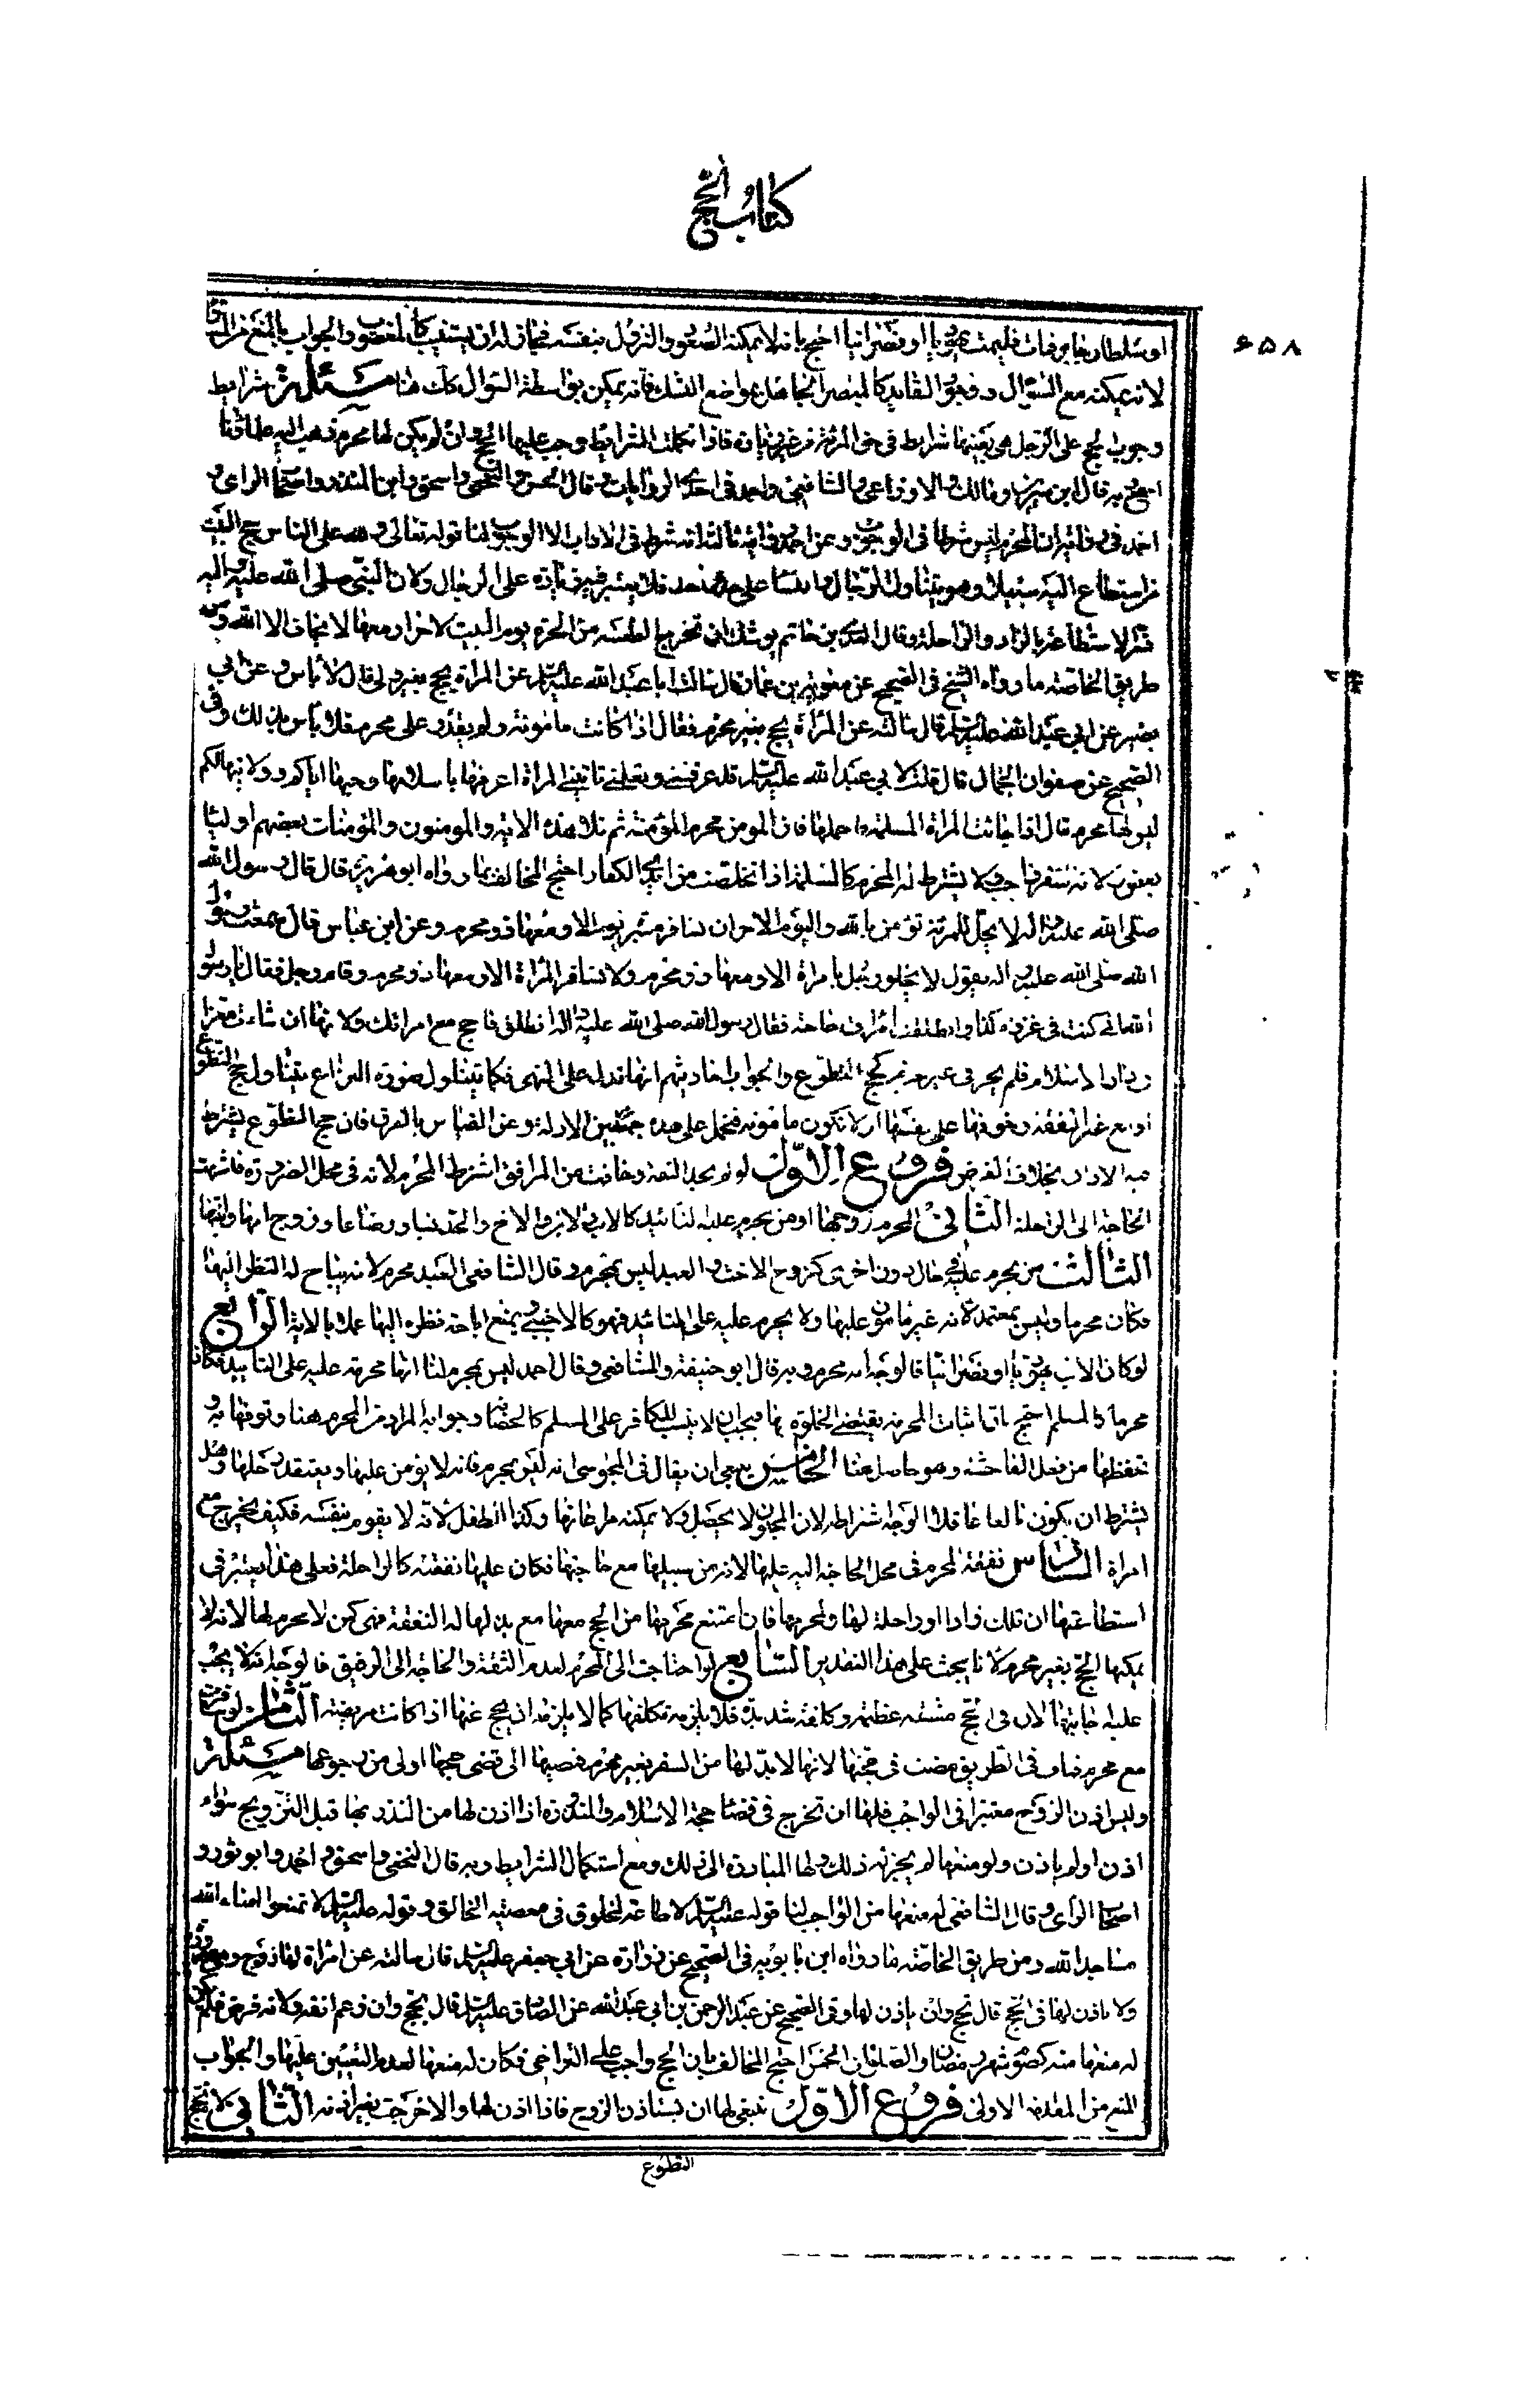 كتاب الحج
۶۵۸
او سلطان جاير فمات فليمت يهوديا او نصرانيا احتج بانه لا يمكنه الصعود والنزول بنفسه فجاز له ان يستنيب كالمعضوب والجواب بالمنع من
لانه يمكنه مع السؤال ووجود القايد كالمبصر الجاهل بمواضع النسك فانه يمكن بواسطة السؤال كك هنا مسئلة شرايط
وجوب الحج على الرجل هي بعينها شرايط في حق المرئة من غير زيادة فاذا تكملت الشرايط وجب عليها الحج وان لم يكن لها محرم ذهب اليه علماؤنا
اجمع وبه قال ابن سيرين ومالك والاوزاعي والشافعي واحمد في احدى الروايات وقال الحسن والنخعي واسحق وابن المنذر واصحاب الراى و
احمد في رواية ان المحرم ليس شرطا في الوجوب وعن احمد رواية ثالثة انه شرط في الاداء لا الوجوب لنا قوله تعالى ولله على الناس حج البيت
من استطاع اليه سبيلا وهو يتناول الرجال والنساء على حد واحد فلا يعتبر فيهن زيادة على الرجال ولان النبي صلى الله عليه واله
فسر الاستطاعة بالزاد والراحلة وقال لعدى بن حاتم يوشك ان تخرج الظعينة من الحيرة يوم البيت لا جوار معها لا تخاف الا الله ومن
طريق الخاصة ما رواه الشيخ في الصحيح عن معوية بن عمار قال سالت ابا عبد الله عليه السلام عن المراة تحج بغير ولى قال لا باس وعن ابي
بصير عن ابي عبد الله عليه السلام قال سالته عن المرأة تحج بغير محرم فقال اذا كانت مامونة ولم يقدر على محرم فلا باس بذلك وفي
الصحيح عن صفوان الجمال قال قلت لابي عبد الله عليه السلام قد عرفتني وتعلمني تاتيني المراة اعرفها باسلامها وحبها اياكم وولايتها لكم
ليس لها محرم قال اذا جائت المراة المسلمة فاحملها فان المومن محرم المؤمنة ثم تلا هذه الاية والمومنون والمؤمنات بعضهم اولياء
بعض ولانه سفر واجب فلا يشترط له المحرم كالمسلمة اذا تخلصت من ايدى الكفار احتج المخالف بما رواه ابو هريرة قال قال رسول الله
صلى الله عليه واله لا يحل لامرئة تؤمن بالله واليوم الاخر ان تسافر مسيرة يوم الا ومعها ذو محرم وعن ابن عباس قال سمعت رسول
الله صلى الله عليه واله يقول لا يخلون رجل بامراة الا ومعها ذو محرم ولا تسافر المرأة الا ومعها ذو محرم وقام رجل فقال يا رسول
الله اني كنت في غزوة كذا وانطلقت امراتي حاجة فقال رسول الله صلى الله عليه واله انطلق فاحج مع امراتك ولانها انشات سفرا
في دار الاسلام فلم يجز في غير محرم كحج التطوع والجواب احاديثهم انها تدل على النهي فكما يتناول صورة النزاع يتناول حج التطوع
او مع عدم النفقة وخوفها على نفسها او لا تكون مامونة فتحمل على هذه جمعا بين الادلة وعن القياس بالفرق فان حج التطوع يشترط
فيه الاذن بخلاف الفرض فروع الاول لو لم يجد الثقة وخافت من المرافق اشترط المحرم لانه في محل الضرورة فاشبهت
الحاجة الى الراحلة الثاني المحرم زوجها او من يحرم عليه للتابيد كالاب والابن والاخ والجد نسبا ورضاعا وزوج امها وابنتها
الثالث من يحرم عليه في حال دون اخرى كزوج الاخت والعبد ليس بمحرم وقال الشافعي العبد محرم لانه يباح له النظر اليها
فكان محرما وليس بمعتمد لانه غير مامون عليها ولا يحرم عليه على التابيد فهو كالاجنبي ويمنع اباحة نظره اليها عملا بالاية الرابع
لو كان الاب يهوديا او نصرانيا فالوجه انه محرم وبه قال ابو حنيفة والشافعي وقال احمد ليس بمحرم لنا انها محرمة عليه على التابيد فكان
محرما كالمسلم احتج بان اثبات المحرمية يقتضي الخلوة بها فيجب ان لا يثبت للكافر على المسلم كالحضانة وجوابه المراد من المحرم هنا وثوقها به و
تحفظها من فعل الفاحشة وهو حاصل هنا الخامس ينبغى ان يقال في المجوسى انه ليس بمحرم فانه لا يؤمن عليها ويعتقد حلها وهل
يشترط ان يكون بالغا عاقلا الوجه اشتراطه لان المجنون لا يحصل ولا يمكنه مراعاتها وكذا الطفل لانه لا يقوم بنفسه فكيف يخرج مع
امراة السادس نفقة المحرم في محل الحاجة اليه عليها لانه من سبيلها مع حاجتها فكان عليها نفقته كالراحلة فعلى هذا يعتبر في
استطاعتها ان تملك زادا وراحلة لها ولمحرمها فان امتنع محرمها من الحج معها مع بذلها له النفقة فهي كمن لا محرم لها لانه لا
يمكنها الحج بغير محرم لانا نبحث على هذا التقدير السابع لو احتاجت الى المحرم لعدم الثقة والحاجة الى الرفيق فالوجه انه لا يجب
عليه اجابتها لان في الحج مشقة عظيمة وكلفة شديدة فلا يلزمه تكلفها كما لا يلزمه ان يحج عنها اذا كانت مريضة الثامن لو خرجت
مع محرم فمات في الطريق مضت في حجتها لانها لا بد لها من السفر بغير محرم فمضيها الى قضى حجها اولى من رجوعها مسئلة
وليس اذن الزوج معتبرا في الواجب فلها ان تخرج في قضاء حجة الاسلام والمنذورة اذا اذن لها من النذر بها قبل التزويج سواء
اذن او لم ياذن ولو منعها لم يجز له ذلك ولها المبادرة الى ذلك ومع استكمال الشرايط وبه قال النخعي واسحق واحمد وابو ثور و
اصحاب الراى وقال الشافعي له منعها من الواجب لنا قوله عليه السلام لا طاعة لمخلوق في معصية الخالق وقوله عليه السلام لا تمنعوا اماء الله
مساجد الله ومن طريق الخاصة ما رواه ابن بابويه في الصحيح عن زرارة عن ابي جعفر عليه السلام قال سالته عن امراة لها زوج وهي
ولا ياذن لها في الحج قال تحج وان لم ياذن لها وفي الصحيح عن عبد الرحمن بن ابي عبد الله عن الصادق عليه السلام قال تحج وان رغم انفه ولانه فرض فلم يكن
له منعها منه كصوم شهر رمضان والصلوات الخمس احتج المخالف بان الحج واجب على التراخي فكان له منعها لعدم التعيين عليها والجواب
المنع من المقدمة الاولى فروع الاول ينبغى لها ان تستاذن الزوج فاذا اذن لها والا خرجت بغير اذنه الثاني لا تحج
التطوع